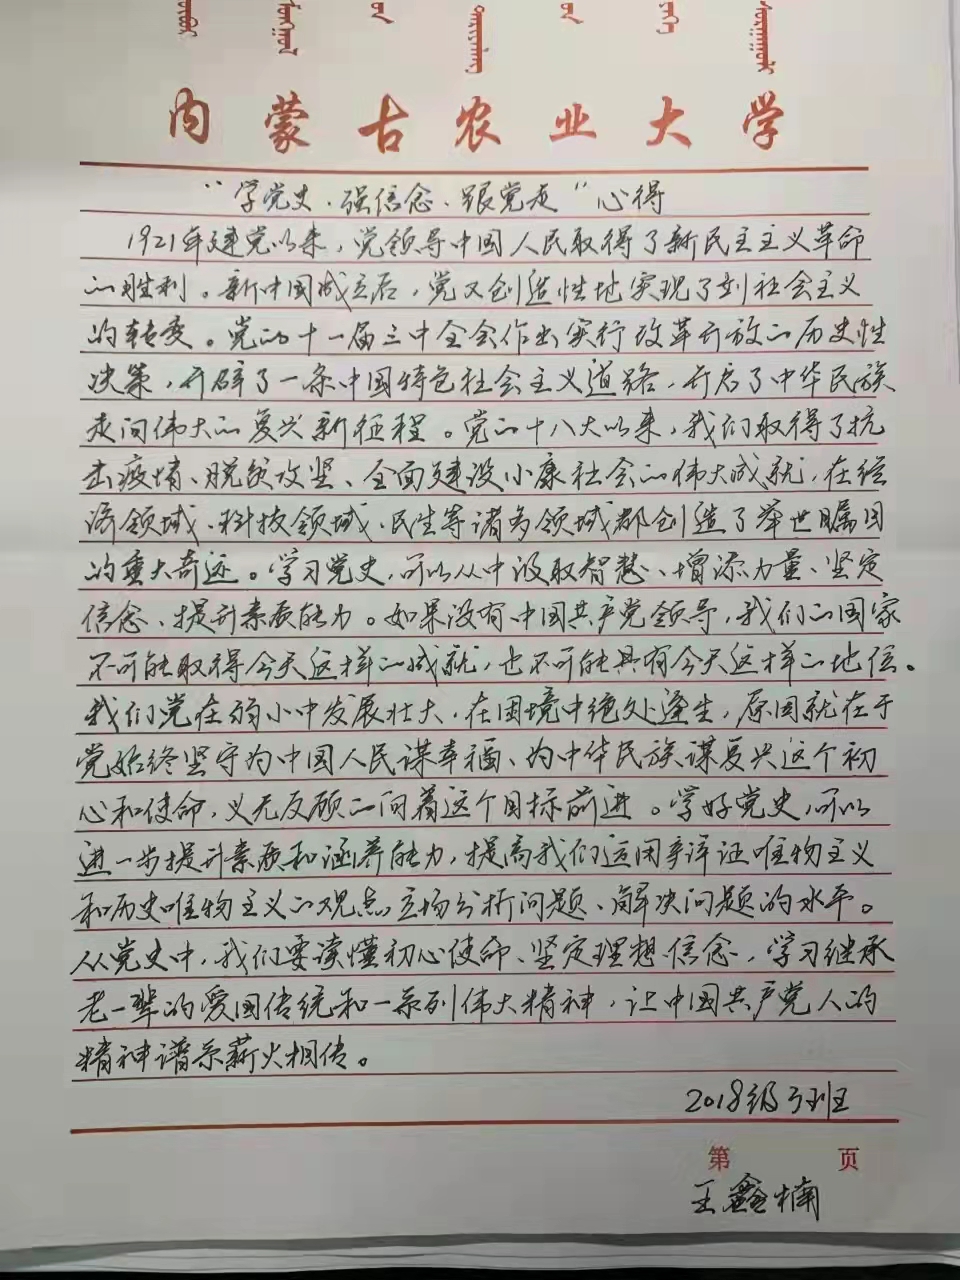 内蒙古农业大学
“学党史、强信念、跟党走”心得
1921年建党以来，党领导中国人民取得了新民主主义革命
的胜利。新中国成立后，党又创造性地实现了到社会主义
的转变。党的十一届三中全会作出实行改革开放的历史性
决策，开辟了一条中国特色社会主义道路，开启了中华民族
走向伟大的复兴新征程。党的十八大以来，我们取得了抗
击疫情、脱贫攻坚、全面建设小康社会的伟大成就，在经
济领域、科技领域、民生等诸多领域都创造了举世瞩目
的重大奇迹。学习党史，可以从中汲取智慧、增添力量、坚定
信念、提升素质能力。如果没有中国共产党领导，我们的国家
不可能取得今天这样的成就，也不可能具有今天这样的地位。
我们党在弱小中发展壮大，在困境中绝处逢生，原因就在于
党始终坚守为中国人民谋幸福、为中华民族谋复兴这个初
心和使命，义无反顾的向着这个目标前进。学好党史，可以
进一步提升素质和涵养能力，提高我们运用辩证唯物主义
和历史唯物主义的观点立场分析问题、解决问题的水平。
从党史中，我们要读懂初心使命、坚定理想信念，学习继承
老一辈的爱国传统和一系列伟大精神，让中国共产党人的
精神谱系薪火相传。
2018级 班
第 页
王鑫楠